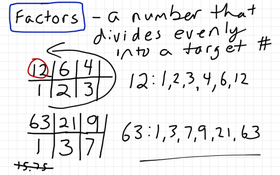 Factors - a number that
divides evenly
into a target #
12 | 6 | 4
1 | 2 | 3
12: 1, 2, 3, 4, 6, 12
63 | 21 | 9
1 | 3 | 7
63: 1, 3, 7, 9, 21, 63
15.75